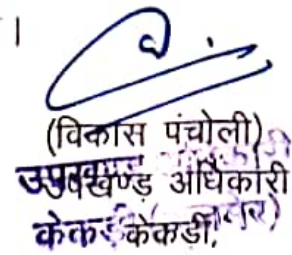 ।
(विकास पंचोली)
उपखण्ड़ अधिकारी
केकडी,